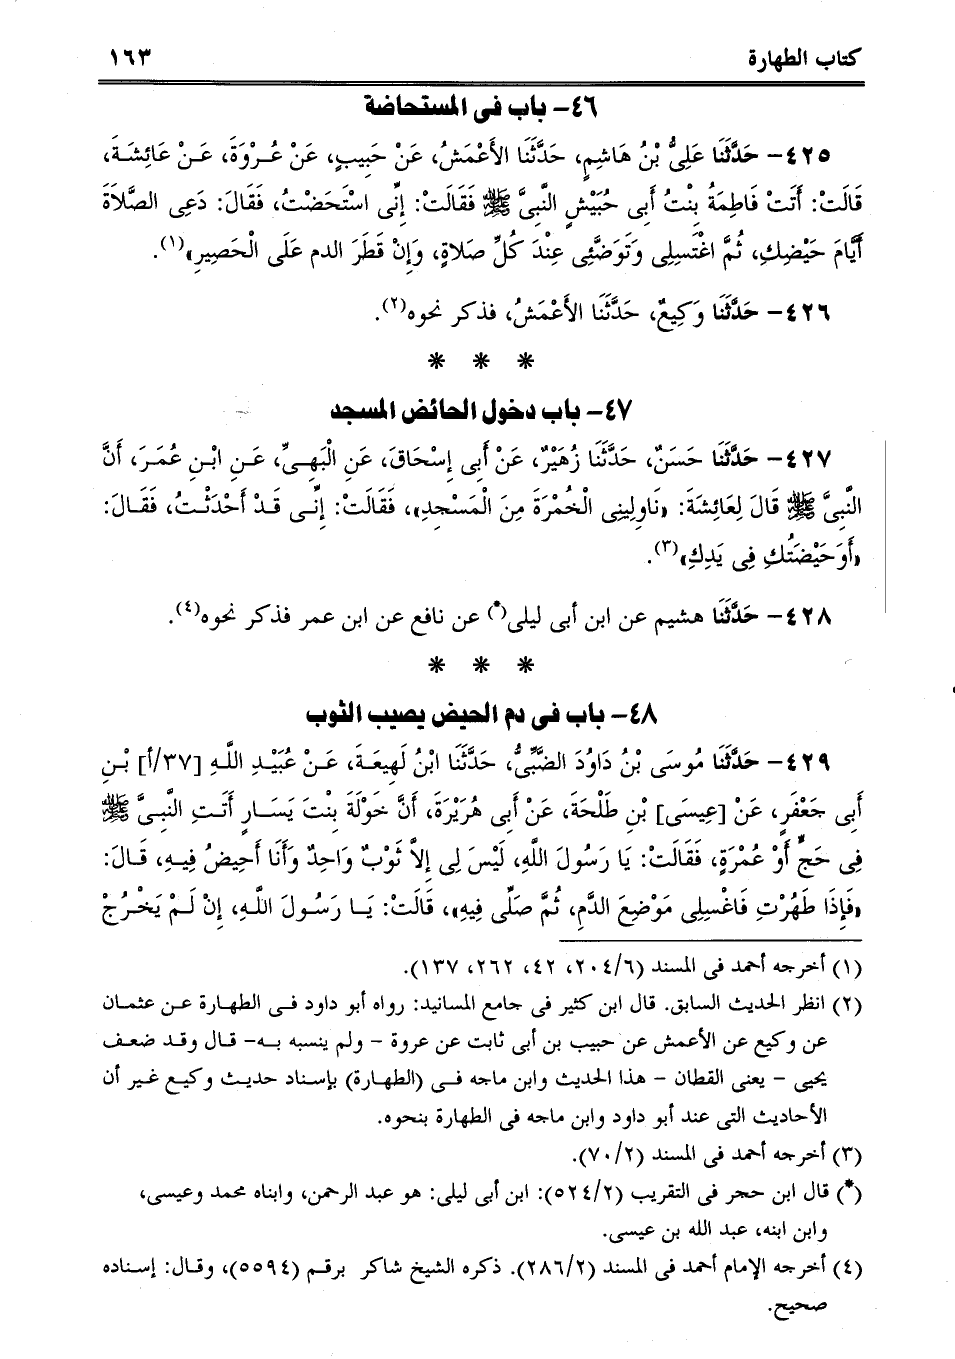 كتاب الطهارة ١٦٣
٤٦- باب فى المستحاضة
٤٢٥- حَدَّثَنَا عَلِىُّ بْنُ هَاشِمٍ، حَدَّثَنَا الأَعْمَشُ، عَنْ حَبِيبٍ، عَنْ عُرْوَةَ، عَنْ عَائِشَةَ،
قَالَتْ: أَتَتْ فَاطِمَةُ بِنْتُ أَبِى حُبَيْشٍ النَّبِىَّ ﷺ فَقَالَتْ: إِنِّى اسْتَحَضْتُ، فَقَالَ: دَعِى الصَّلاَةَ
أَيَّامَ حَيْضِكِ، ثُمَّ اغْتَسِلِى وَتَوَضَّئِى عِنْدَ كُلِّ صَلاَةٍ، وَإِنْ قَطَرَ الدم عَلَى الْحَصِيرِ»(١).
٤٢٦- حَدَّثَنَا وَكِيعٌ، حَدَّثَنَا الأَعْمَشُ، فذكر نحوه(٢).
* * *
٤٧- باب دخول الحائض المسجد
٤٢٧- حَدَّثَنَا حَسَنٌ، حَدَّثَنَا زُهَيْرٌ، عَنْ أَبِى إِسْحَاقَ، عَنِ الْبَهِىِّ، عَنِ ابْنِ عُمَرَ، أَنَّ
النَّبِىَّ ﷺ قَالَ لِعَائِشَةَ: «نَاوِلِينِى الْخُمْرَةَ مِنَ الْمَسْجِدِ»، فَقَالَتْ: إِنِّى قَدْ أَحْدَثْتُ، فَقَالَ:
«أَوَحَيْضَتُكِ فِى يَدِكِ»(٣).
٤٢٨- حَدَّثَنَا هشيم عن ابن أبى ليلى(*) عن نافع عن ابن عمر فذكر نحوه(٤).
* * *
٤٨- باب فى دم الحيض يصيب الثوب
٤٢٩- حَدَّثَنَا مُوسَى بْنُ دَاوُدَ الضَّبِّىُّ، حَدَّثَنَا ابْنُ لَهِيعَةَ، عَنْ عُبَيْدِ اللَّهِ [٣٧/أ] بْنِ
أَبِى جَعْفَرٍ، عَنْ [عِيسَى] بْنِ طَلْحَةَ، عَنْ أَبِى هُرَيْرَةَ، أَنَّ خَوْلَةَ بِنْتَ يَسَارٍ أَتَتِ النَّبِىَّ ﷺ
فِى حَجٍّ أَوْ عُمْرَةٍ، فَقَالَتْ: يَا رَسُولَ اللَّهِ، لَيْسَ لِى إِلاَّ ثَوْبٌ وَاحِدٌ وَأَنَا أَحِيضُ فِيهِ، قَالَ:
«فَإِذَا طَهُرْتِ فَاغْسِلِى مَوْضِعَ الدَّمِ، ثُمَّ صَلِّى فِيهِ»، قَالَتْ: يَا رَسُولَ اللَّهِ، إِنْ لَمْ يَخْرُجْ
(١) أخرجه أحمد فى المسند (٢٠٤/٦، ٤٢، ٢٦٢، ١٣٧).
(٢) انظر الحديث السابق. قال ابن كثير فى جامع المسانيد: رواه أبو داود فى الطهارة عن عثمان
عن وكيع عن الأعمش عن حبيب بن أبى ثابت عن عروة - ولم ينسبه به- قال وقد ضعف
يحيى - يعنى القطان - هذا الحديث وابن ماجه فى (الطهارة) بإسناد حديث وكيع غير أن
الأحاديث التى عند أبو داود وابن ماجه فى الطهارة بنحوه.
(٣) أخرجه أحمد فى المسند (٧٠/٢).
(*) قال ابن حجر فى التقريب (٥٢٤/٢): ابن أبى ليلى: هو عبد الرحمن، وابناه محمد وعيسى،
وابن ابنه، عبد الله بن عيسى.
(٤) أخرجه الإمام أحمد فى المسند (٢٨٦/٢). ذكره الشيخ شاكر برقم (٥٥٩٤)، وقال: إسناده
صحيح.